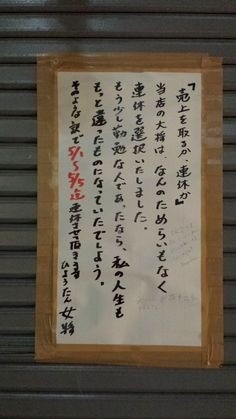 『売上を取るか、連休か』
当店の大将は、なんのためらいもなく
連休を選択いたしました。
もう少し勤勉な人であったなら、私の人生も
もっと違ったものになっていたでしょう。
そのような訳で5/1〜5/5迄連休させて頂きます
ひょうたん 女将